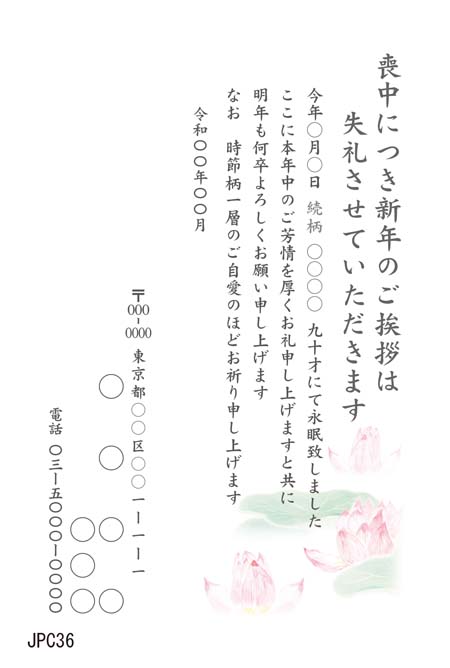 喪中につき新年のご挨拶は
失礼させていただきます
今年〇月〇日 続柄 〇〇〇〇 九十才にて永眠致しました
ここに本年中のご芳情を厚くお礼申し上げますと共に
明年も何卒よろしくお願い申し上げます
なお 時節柄一層のご自愛のほどお祈り申し上げます
令和〇〇年〇〇月
〒000-0000 東京都〇〇区〇〇一ー一ー一
〇 〇 〇〇
〇〇〇
電話 〇三ー五〇〇〇ー〇〇〇〇
JPC36